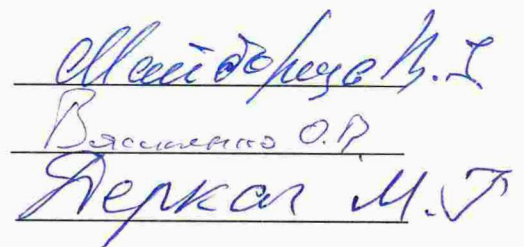 Майборода В.І.
Василенко О.В.
Деркач М.Г